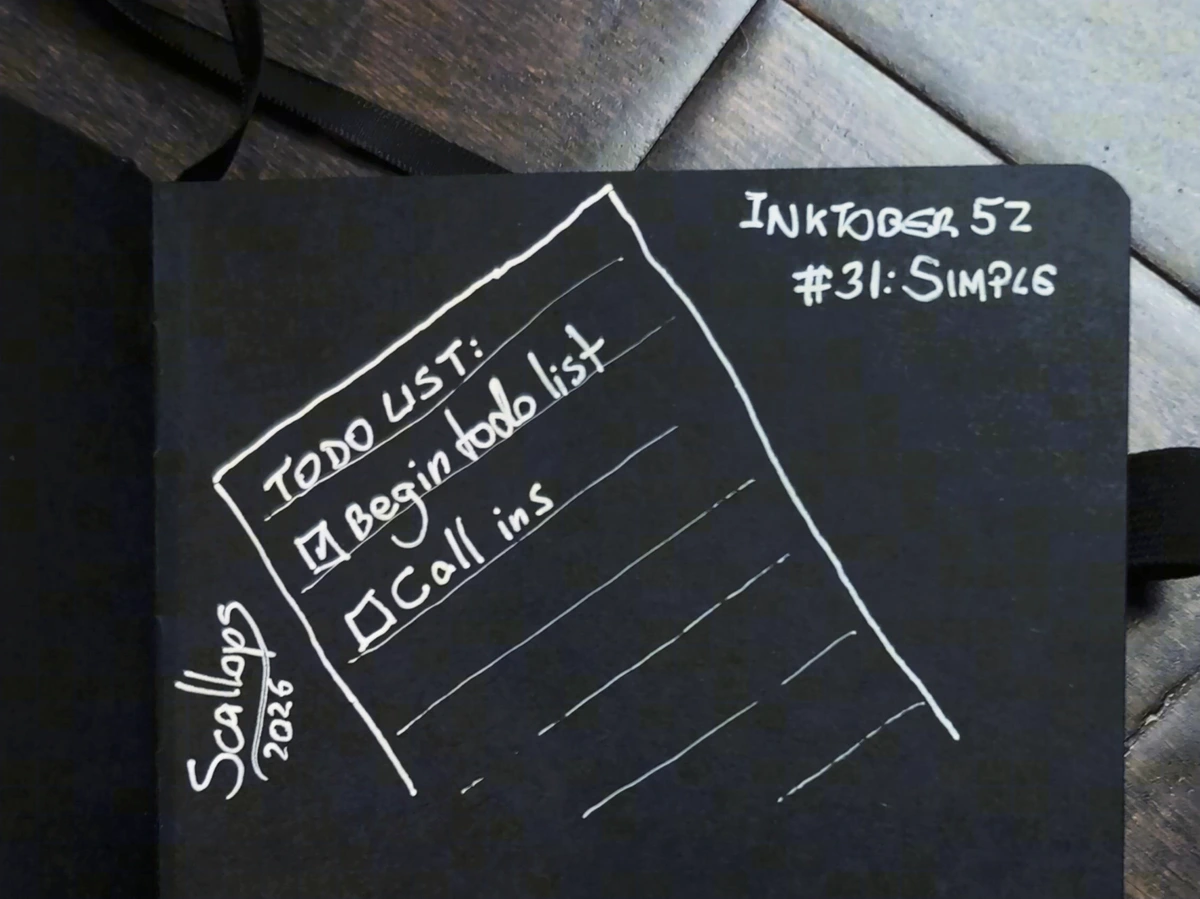 INKTOBER 52
#31: SIMPLE
TODO LIST:
Begin todo list
Call ins
Scallops
2026